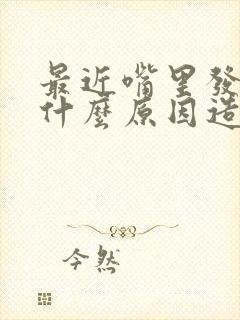 最近嘴里發
什麼原因造
今然